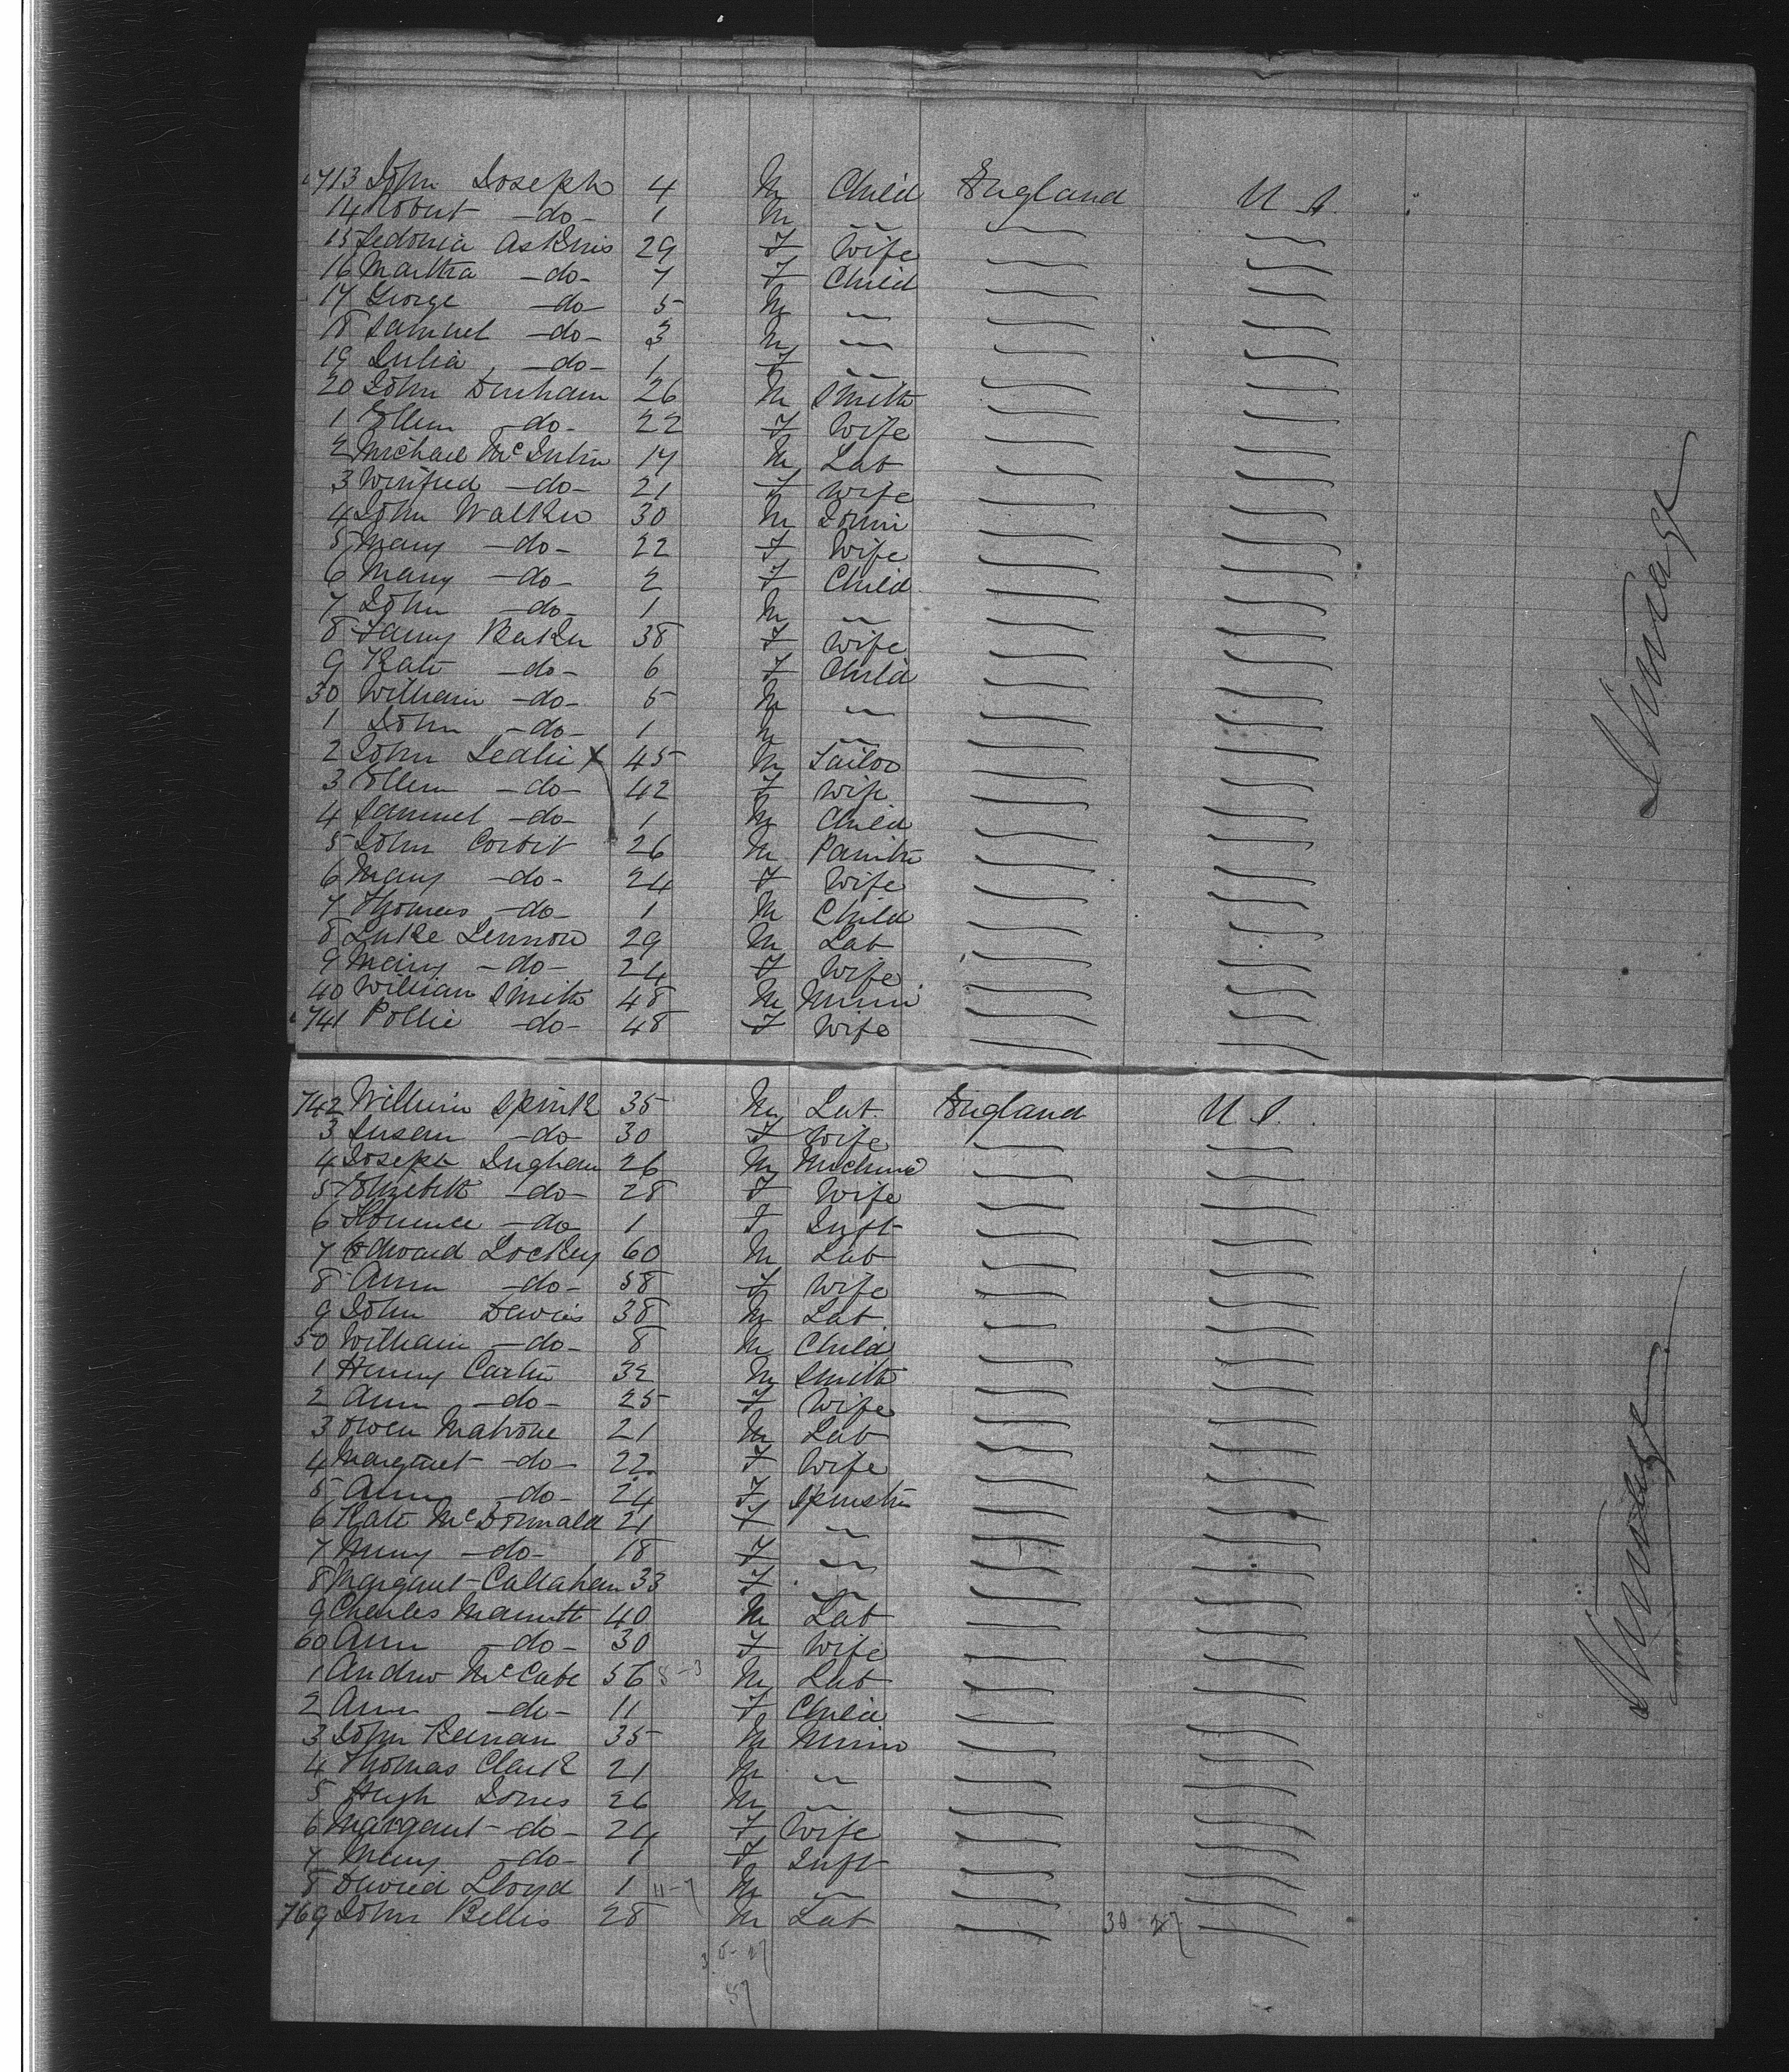 713 John Joseph 4 M Child England U S.
14 Robert -do- 1 M "
15 Sedonia Askins 29 F Wife
16 Martha -do- 7 F Child
17 George -do- 5 M "
18 Samuel -do- 3 M "
19 Julia -do- 1 F "
20 John Denham 26 M Smith
1 Ellen -do- 22 F Wife
2 Michael McIntin 17 M Lab
3 Winifred -do- 21 F Wife
4 John Walker 30 M
5 Mary -do- 22 F Wife
6 Mary -do- 2 F Child
7 John -do- 1 M "
8 Fanny Baker 38 F Wife
9 Kate -do- 6 F Child
30 William -do- 5 M "
1 John -do- 1 M "
2 John Ledlie x 45 M Tailor
3 Ellen -do- 42 F Wife
4 Samuel -do- 1 M Child
5 John Corbit 26 M Painter
6 Mary -do- 24 F Wife
7 Thomas -do- 1 M Child
8 Luke Lennon 29 M Lab
9 Mary -do- 24 F Wife
40 William Smith 48 M Miner
741 Pollie -do- 48 F Wife
Steerage
742 William Spink 35 M Lab. England U S.
3 Susan -do- 30 F Wife
4 Joseph Ingham 26 M
5 Elizebeth -do- 28 F Wife
6 Florence -do- 1 F Inft
7 Edward Lockey 60 M Lab
8 Ann -do- 58 F Wife
9 John Davies 38 M Lab.
50 William -do- 8 M Child
1 Henry Carter 32 M Smith
2 Ann -do- 25 F Wife
3 Owen Malrone 21 M Lab
4 Margret -do- 22 F Wife
5 Ann -do- 24 F Spinster
6 Kate McDonnald 21 F "
7 Mary -do- 18 F "
8 Margaret Callahan 33 F "
9 Charles 40 M Lab
60 Ann -do- 30 F Wife
1 Andrew McCabe 56 8-3 M Lab
2 Ann -do- 11 F Child
3 John Keenan 35 M Miner
4 Thomas Clark 21 M "
5 Hugh Jones 26 M "
6 Margaret -do- 24 F Wife
7 Mary -do- 1 F Inft
8 David Lloyd 1 11-7 M "
769 John Bellis 28 M Lab 30 27
Steerage
57